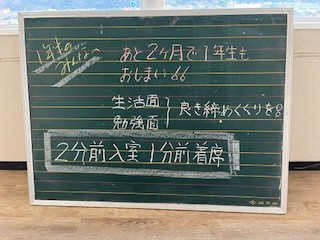 1年生の
みんなへ
あと2ヶ月で1年生も
おしまい
生活面
勉強面
良き締めくくりを
2分前入室 1分前着席